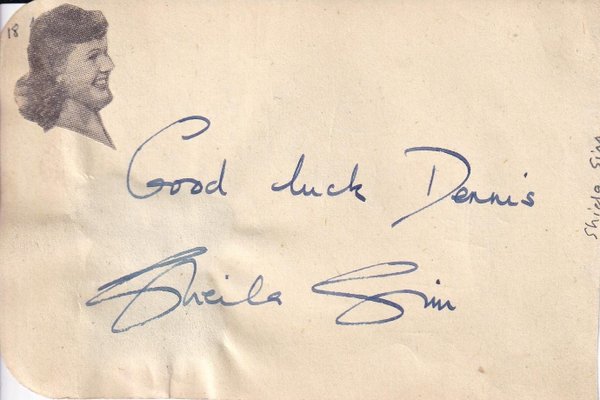 18
Good luck Dennis
Sheila Sim
Shiela Sim